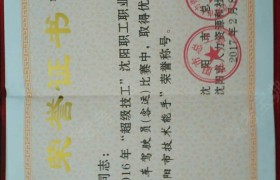 荣誉证书
同志:
016年“超级技工”沈阳职工职业
车驾驶员(客运)比赛中,取得优
阳市技术能手”荣誉称号。
沈阳市总
沈阳市人力资源和社
2017年2月